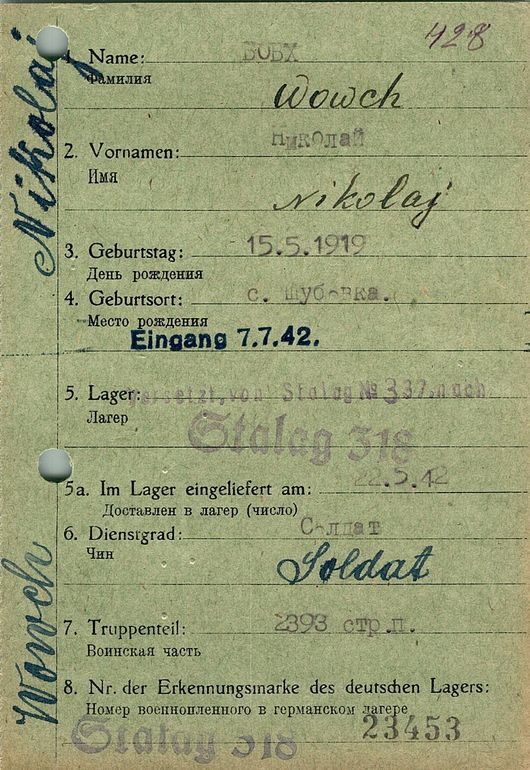 428
1. Name: ВОВХ
Фамилия
Wowch
2. Vornamen: Николай
Имя
Nikolaj
3. Geburtstag: 15.5.1919
День рождения
4. Geburtsort: с. Шубовка.
Место рождения
Eingang 7.7.42.
5. Lager: Versetzt von Stalag № 337 nach
Лагер
Stalag 318
5a. Im Lager eingeliefert am: 22.5.42
Доставлен в лагер (число)
6. Dienstgrad: Солдат
Чин
Soldat
7. Truppenteil: 2393 стр.п.
Воинская часть
8. Nr. der Erkennungsmarke des deutschen Lagers:
Номер военнопленного в германском лагере
23453
Stalag 318
Nikolaj
Wowch